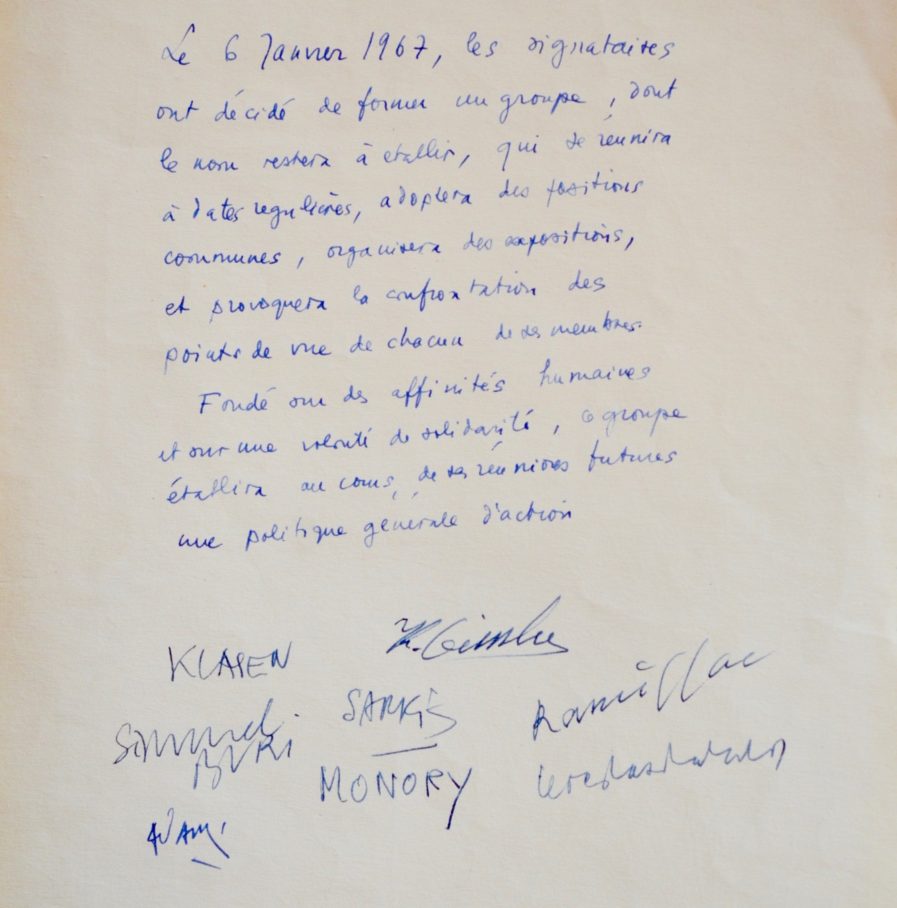 Le 6 Janvier 1967, les signataires
ont décidé de former un groupe, dont
le nom restera à etablir, qui se réunira
à dates regulières, adoptera des positions
communes, organisera des expositions,
et provoquera la confrontation des
points de vue de chacun de ses membres.
Fondé sur des affinités humaines
et sur une volonté de solidarité, ce groupe
établira au cours, de ses réunions futures
une politique generale d'action
KLASEN
SARKIS
BURI
MONORY
ADAMI